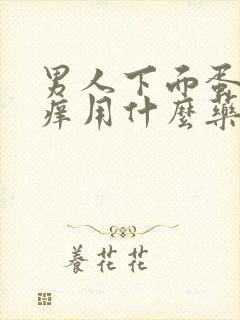 男人下而蛋
痒用什麼藥
養花花